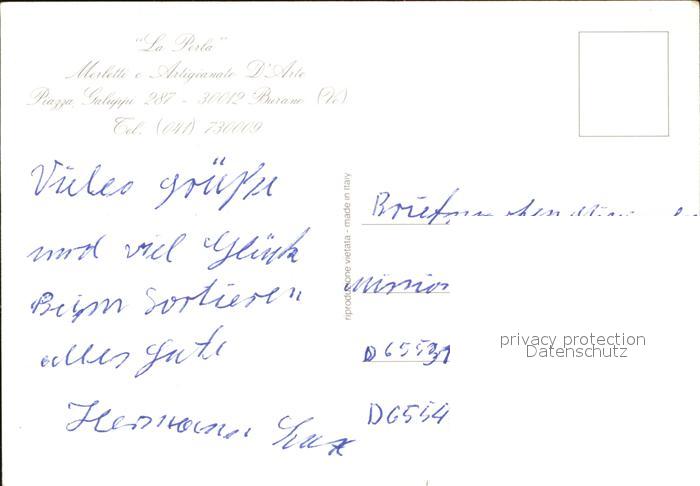 "La Perla"
Merletti e Artigianato D'Arte
Piazza, Galuppi 287 - 30012 Burano (Ve)
Tel. (041) 730009
Viele Grüße
und viel Glück
Beim Sortieren
alles Gute
Hermann
riproduzione vietata - made in italy
Mission
D 6553
D 6554
privacy protection
Datenschutz